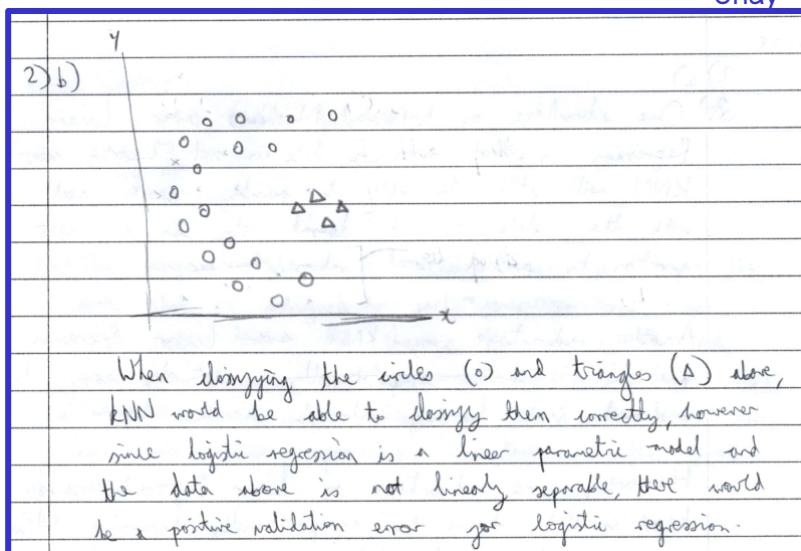 y
2) b)
x
When classifying the circles (o) and triangles (Δ) above,
kNN would be able to classify them correctly, however
since logistic regression is a linear parametric model and
the data above is not linearly separable, there would
be a positive validation error for logistic regression.